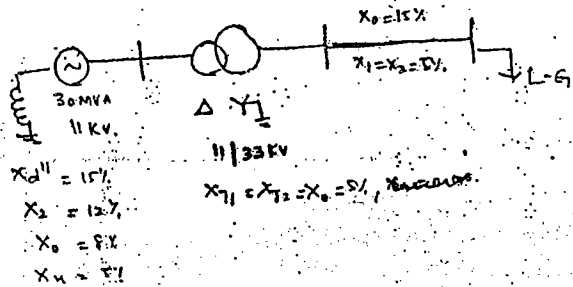 X₀ = 15%
X₁ = X₂ = 5%
L-G
30 MVA
11 KV.
Δ Y
11/33 KV
Xd" = 15%
X_T1 = X_T2 = X₀ = 5%,
X₂ = 12%
X₀ = 8%
X_n = 5%